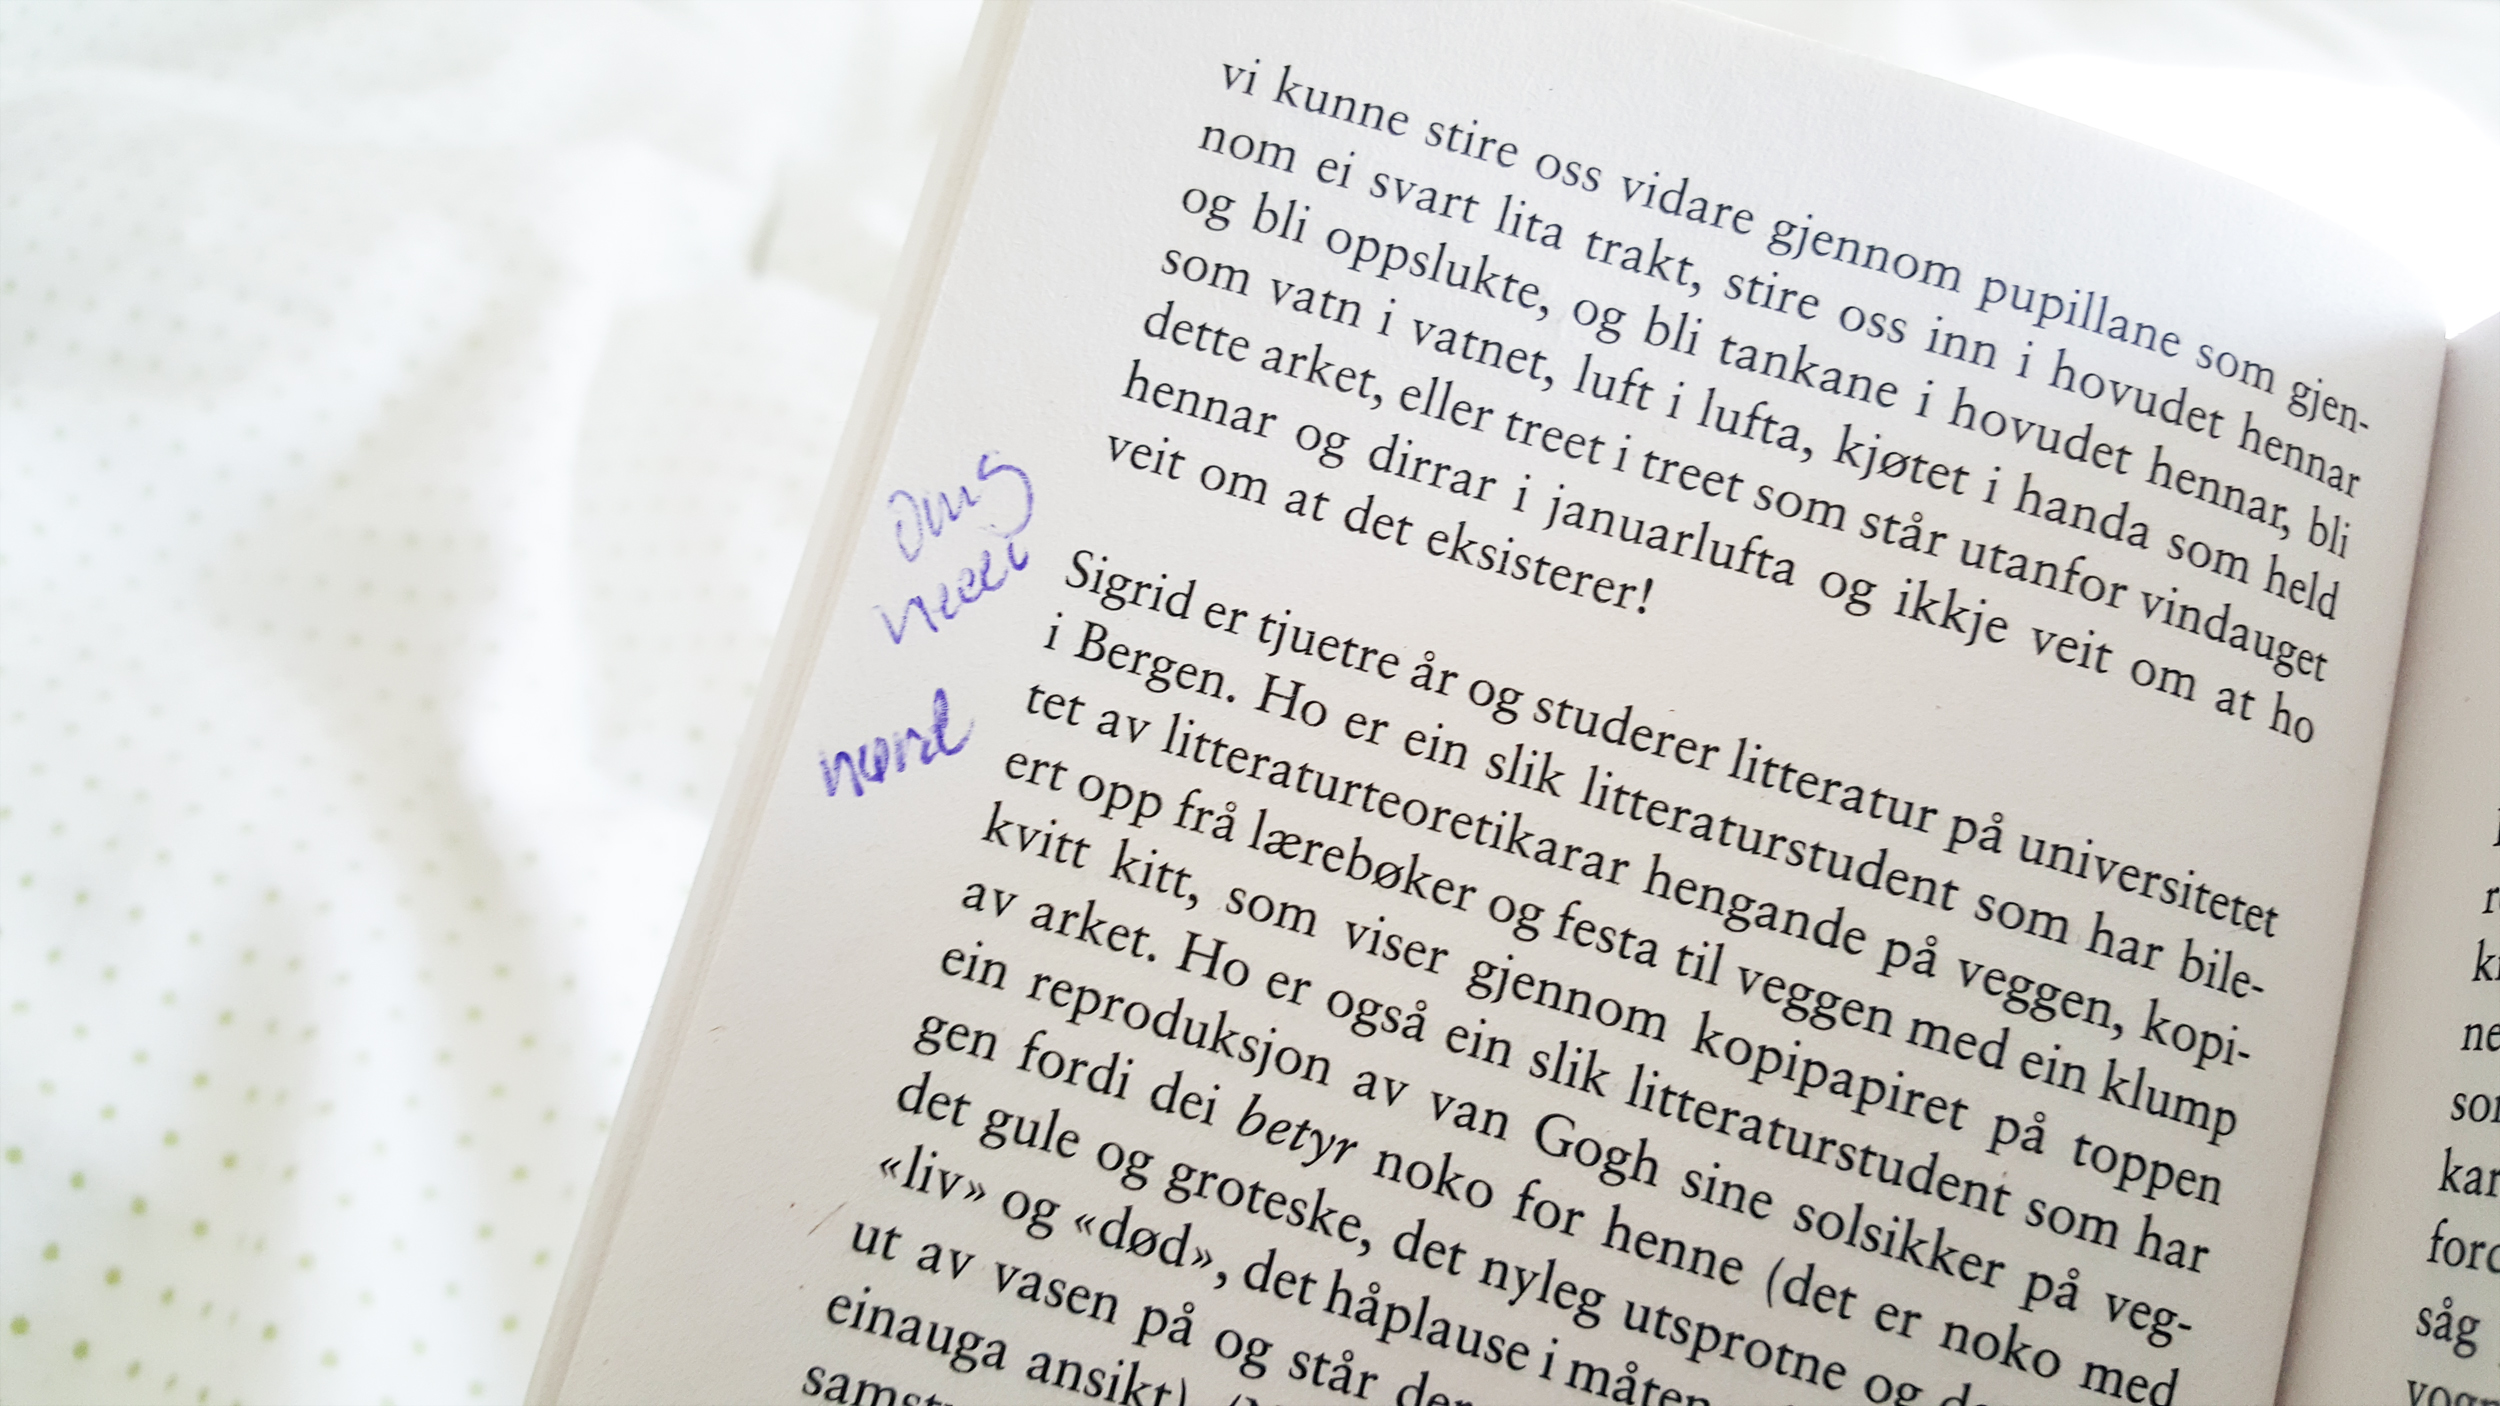 vi kunne stire oss vidare gjennom pupillane som gjen-
nom ei svart lita trakt, stire oss inn i hovudet hennar
og bli oppslukte, og bli tankane i hovudet hennar, bli
som vatn i vatnet, luft i lufta, kjøtet i handa som held
dette arket, eller treet i treet som står utanfor vindauget
hennar og dirrar i januarlufta og ikkje veit om at ho
veit om at det eksisterer!
Sigrid er tjuetre år og studerer litteratur på universitetet
i Bergen. Ho er ein slik litteraturstudent som har bile-
tet av litteraturteoretikarar hengande på veggen, kopi-
ert opp frå lærebøker og festa til veggen med ein klump
kvitt kitt, som viser gjennom kopipapiret på toppen
av arket. Ho er også ein slik litteraturstudent som har
ein reproduksjon av van Gogh sine solsikker på veg-
gen fordi dei betyr noko for henne (det er noko med
det gule og groteske, det nyleg utsprotne og
«liv» og «død», det håplause i måten
ut av vasen på og står
einauga ansikt)
nerd
såg